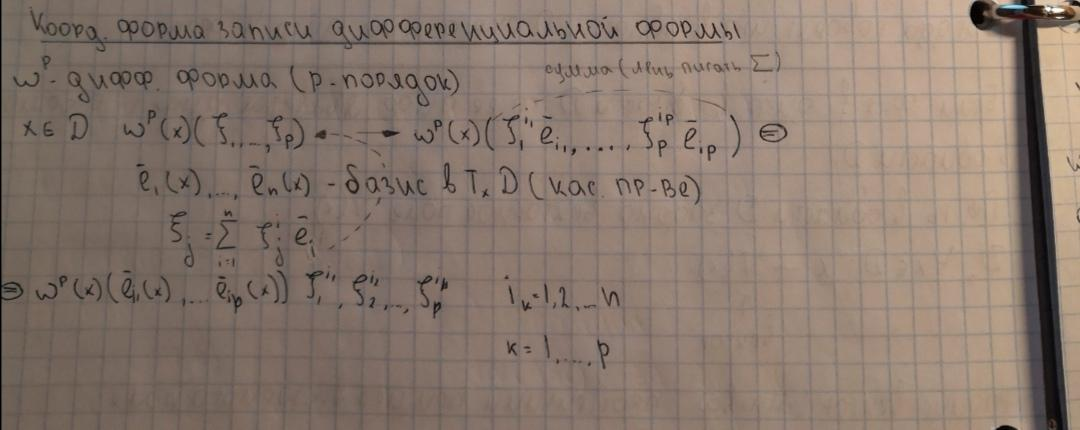 Коорд. форма записи дифференциальной формы
ω^p - дифф. форма (p - порядок) сумма (лень писать Σ)
x ∈ D ω^p(x)(ξ_1, ..., ξ_p) ω^p(x)(ξ_1^{i_1} ē_{i_1}, ..., ξ_p^{i_p} ē_{i_p}) ⊜
ē_1(x), ..., ē_n(x) - базис в T_x D (кас. пр-ве)
ξ_j = Σ_{i=1}^{n} ξ_j^i ē_i
⊜ ω^p(x)(ē_{i_1}(x), ... ē_{i_p}(x)) ξ_1^{i_1}, ξ_2^{i_2}, ..., ξ_p^{i_p} i_k = 1, 2, ... n
k = 1, ..., p